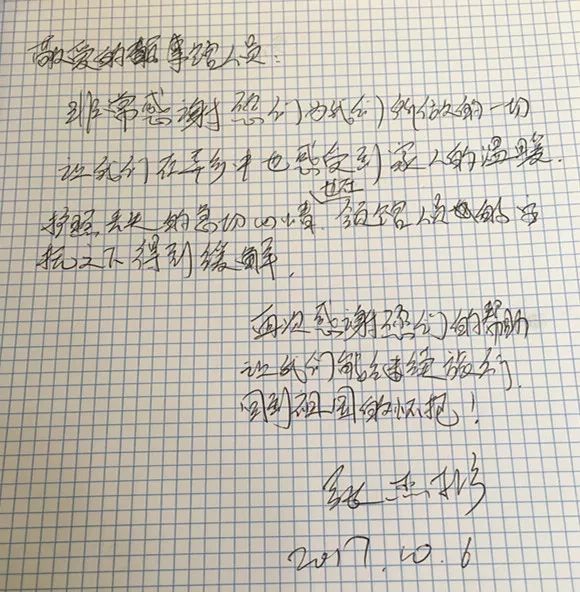 敬爱的领事馆人员:
非常感谢您们为我们所做的一切
让我们在异乡中也感受到家人的温暖.
护照丢失的急切心情,也在领馆人员的
抚之下得到缓解.
再次感谢您们的帮助
让我们能继续旅行,
回到祖国的怀抱!
2017.10.6